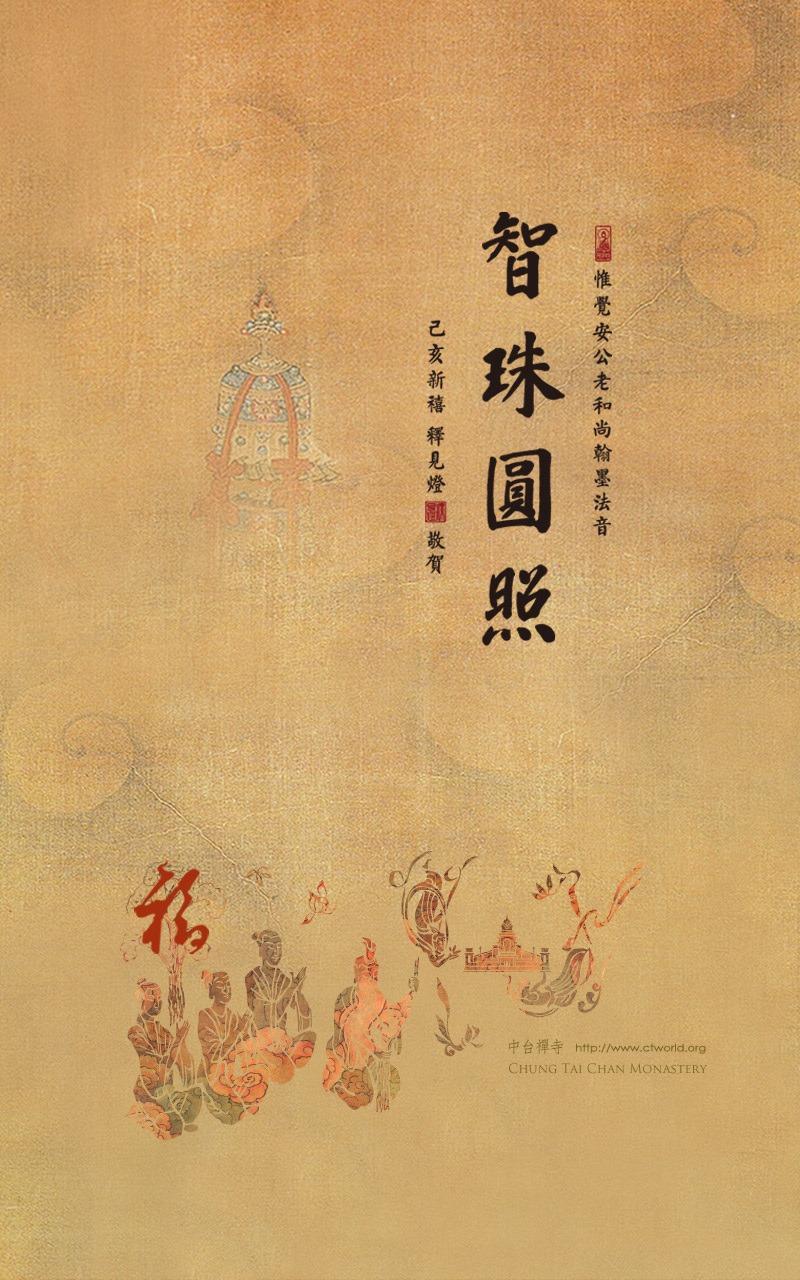 惟覺安公老和尚翰墨法音
智珠圓照
己亥新禧 釋見燈 敬賀
福
中台禪寺 http://www.ctworld.org
CHUNG TAI CHAN MONASTERY